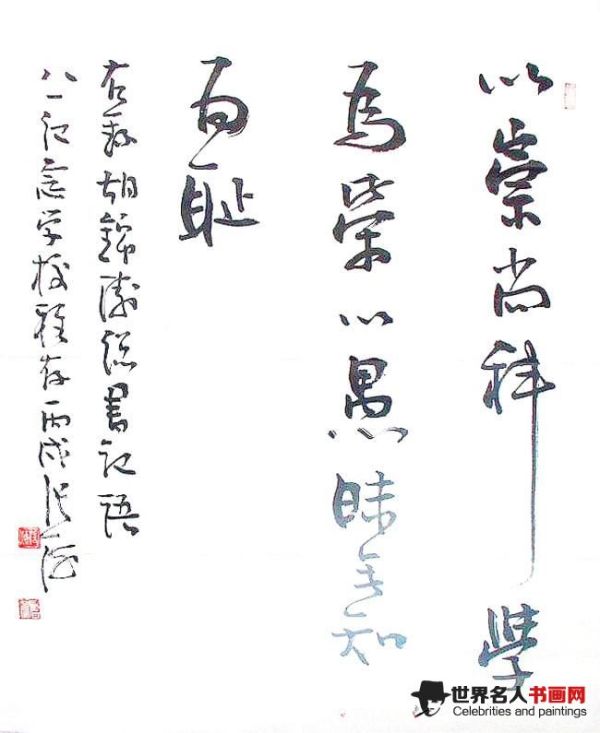 以崇尚科學
為榮以愚昧無知
為耻
右録胡錦濤總書記語
八一記念学校雅存丙戌
世界名人书画网
Celebrities and paintings